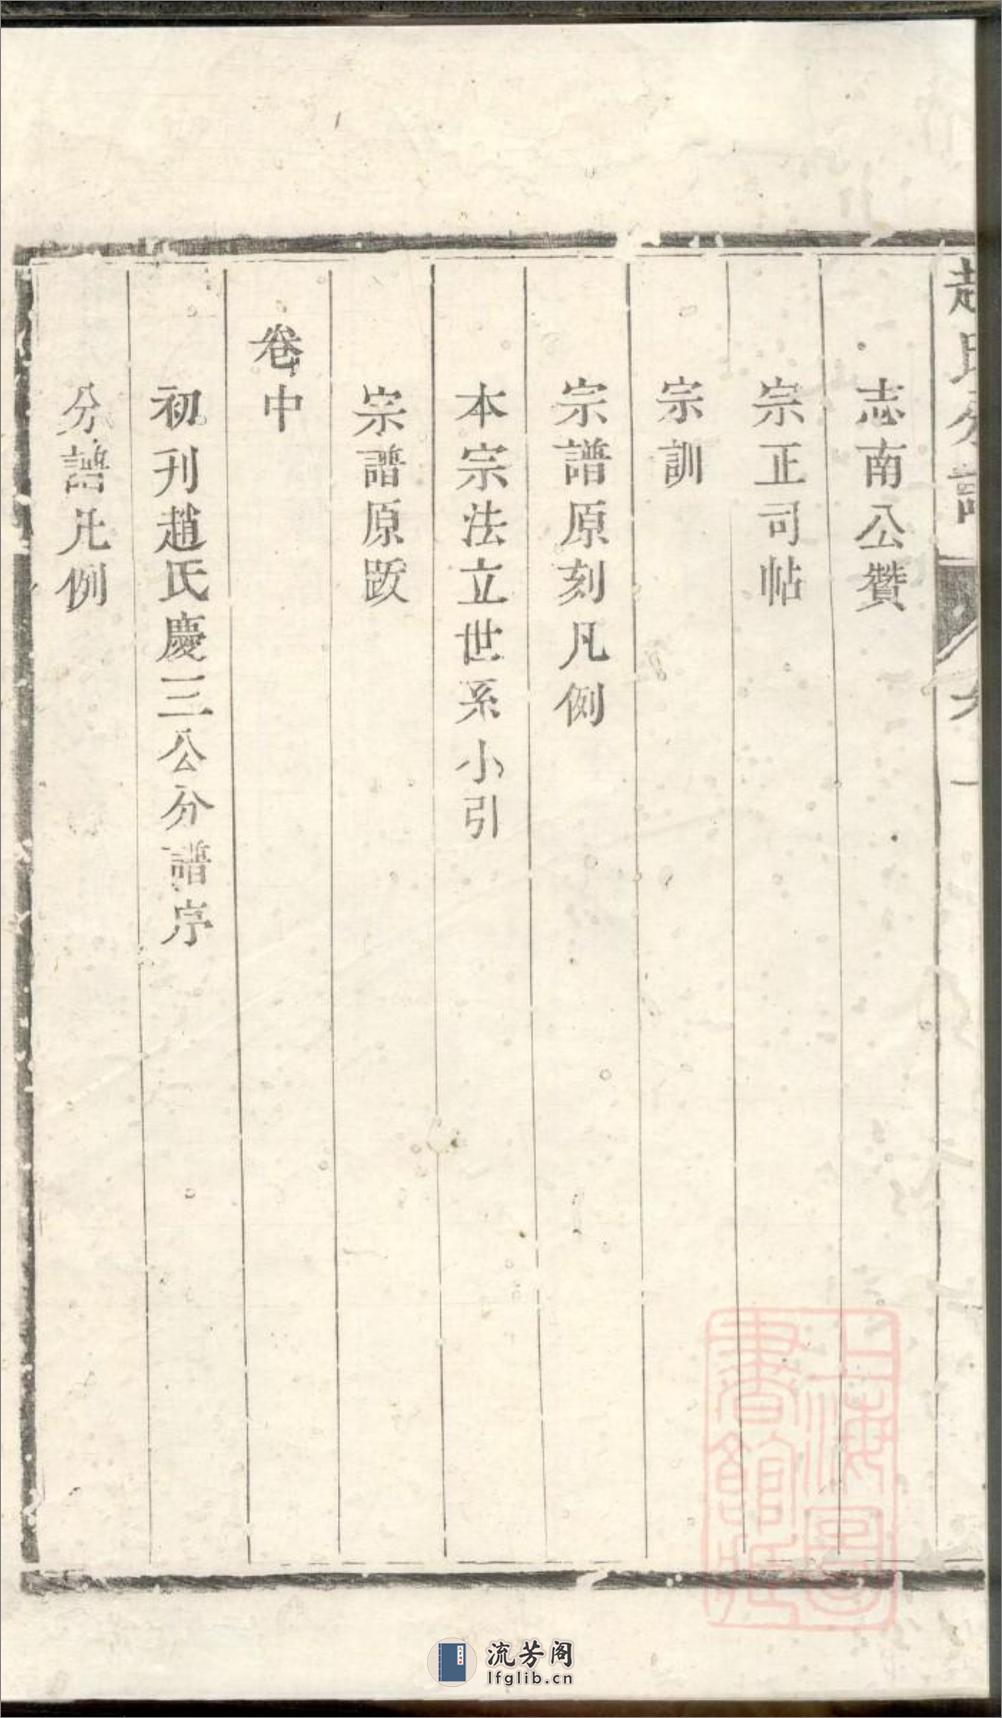 趙氏分譜
志南公贊
宗正司帖
宗訓
宗譜原刻凡例
本宗法立世系小引
宗譜原跋
卷中
初刊趙氏慶三公分譜序
分譜凡例
上海圖
書館藏
流芳阁
lfglib.cn